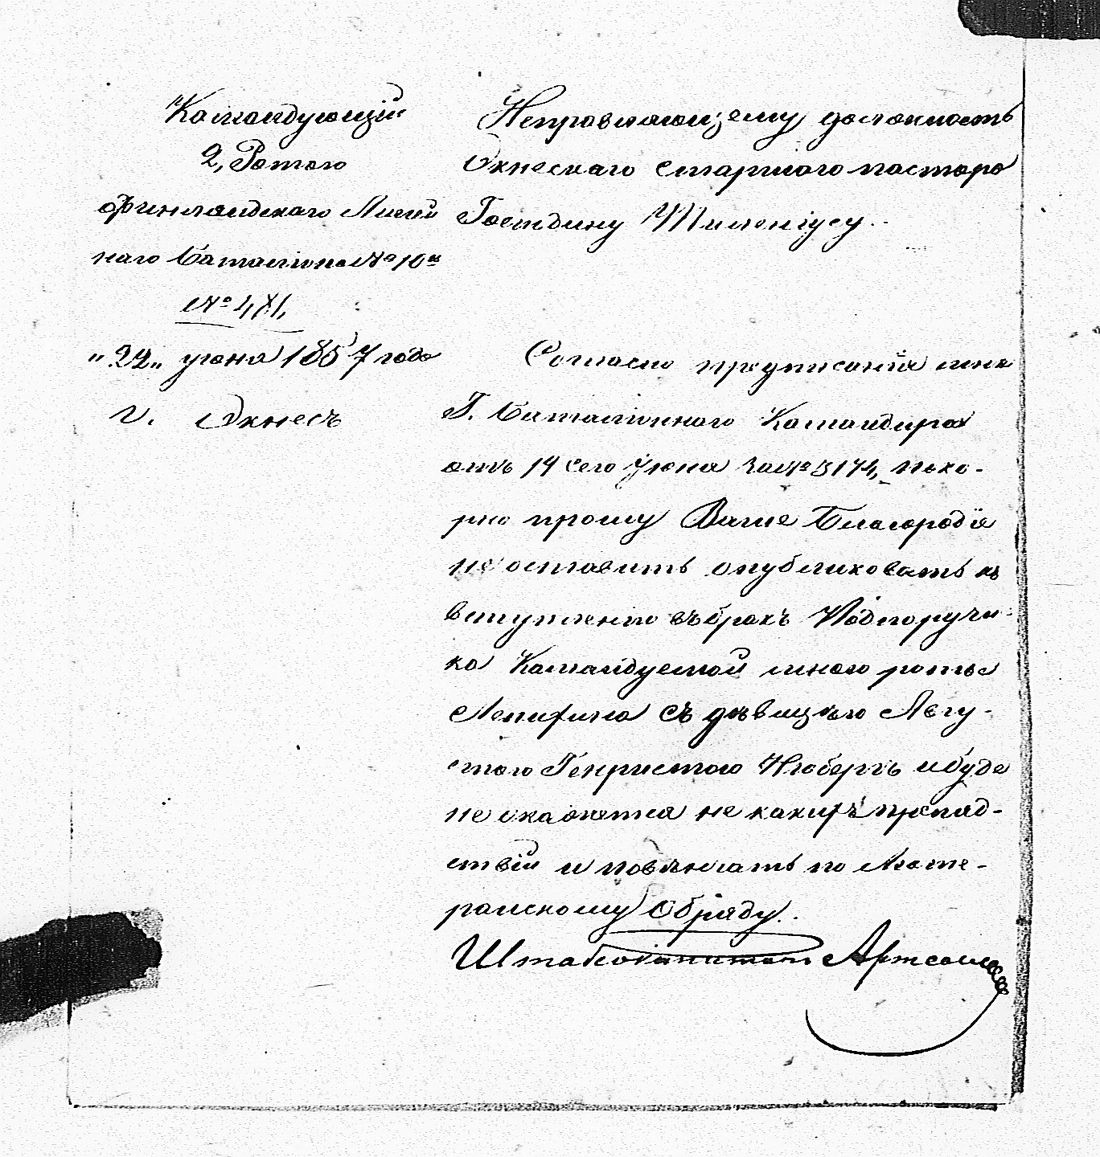 Командующій
2, Ротою
Финляндскаго Линей
наго Баталіона № 10го
№ 471,
"22" іюня 1857 года
г. Экнесъ
Исправляющему должность
Экнескаго старшаго пастора
Господину
Согласно предписанія мнѣ
Г. Баталіоннаго Командира
отъ 14 сего Іюня за № 3174, поко-
рно прошу Ваше Благородіе
не оставить опубликовать къ
вступленію въ бракъ Подпоручи-
ка Командуемой мною роты
съ дѣвицѣю Авгу-
стою Генриетою Нюбергъ и буде
не окажется не какихъ препяд-
ствій и повѣнчать по Люте-
ранскому Обряду.
Штабскапитанъ